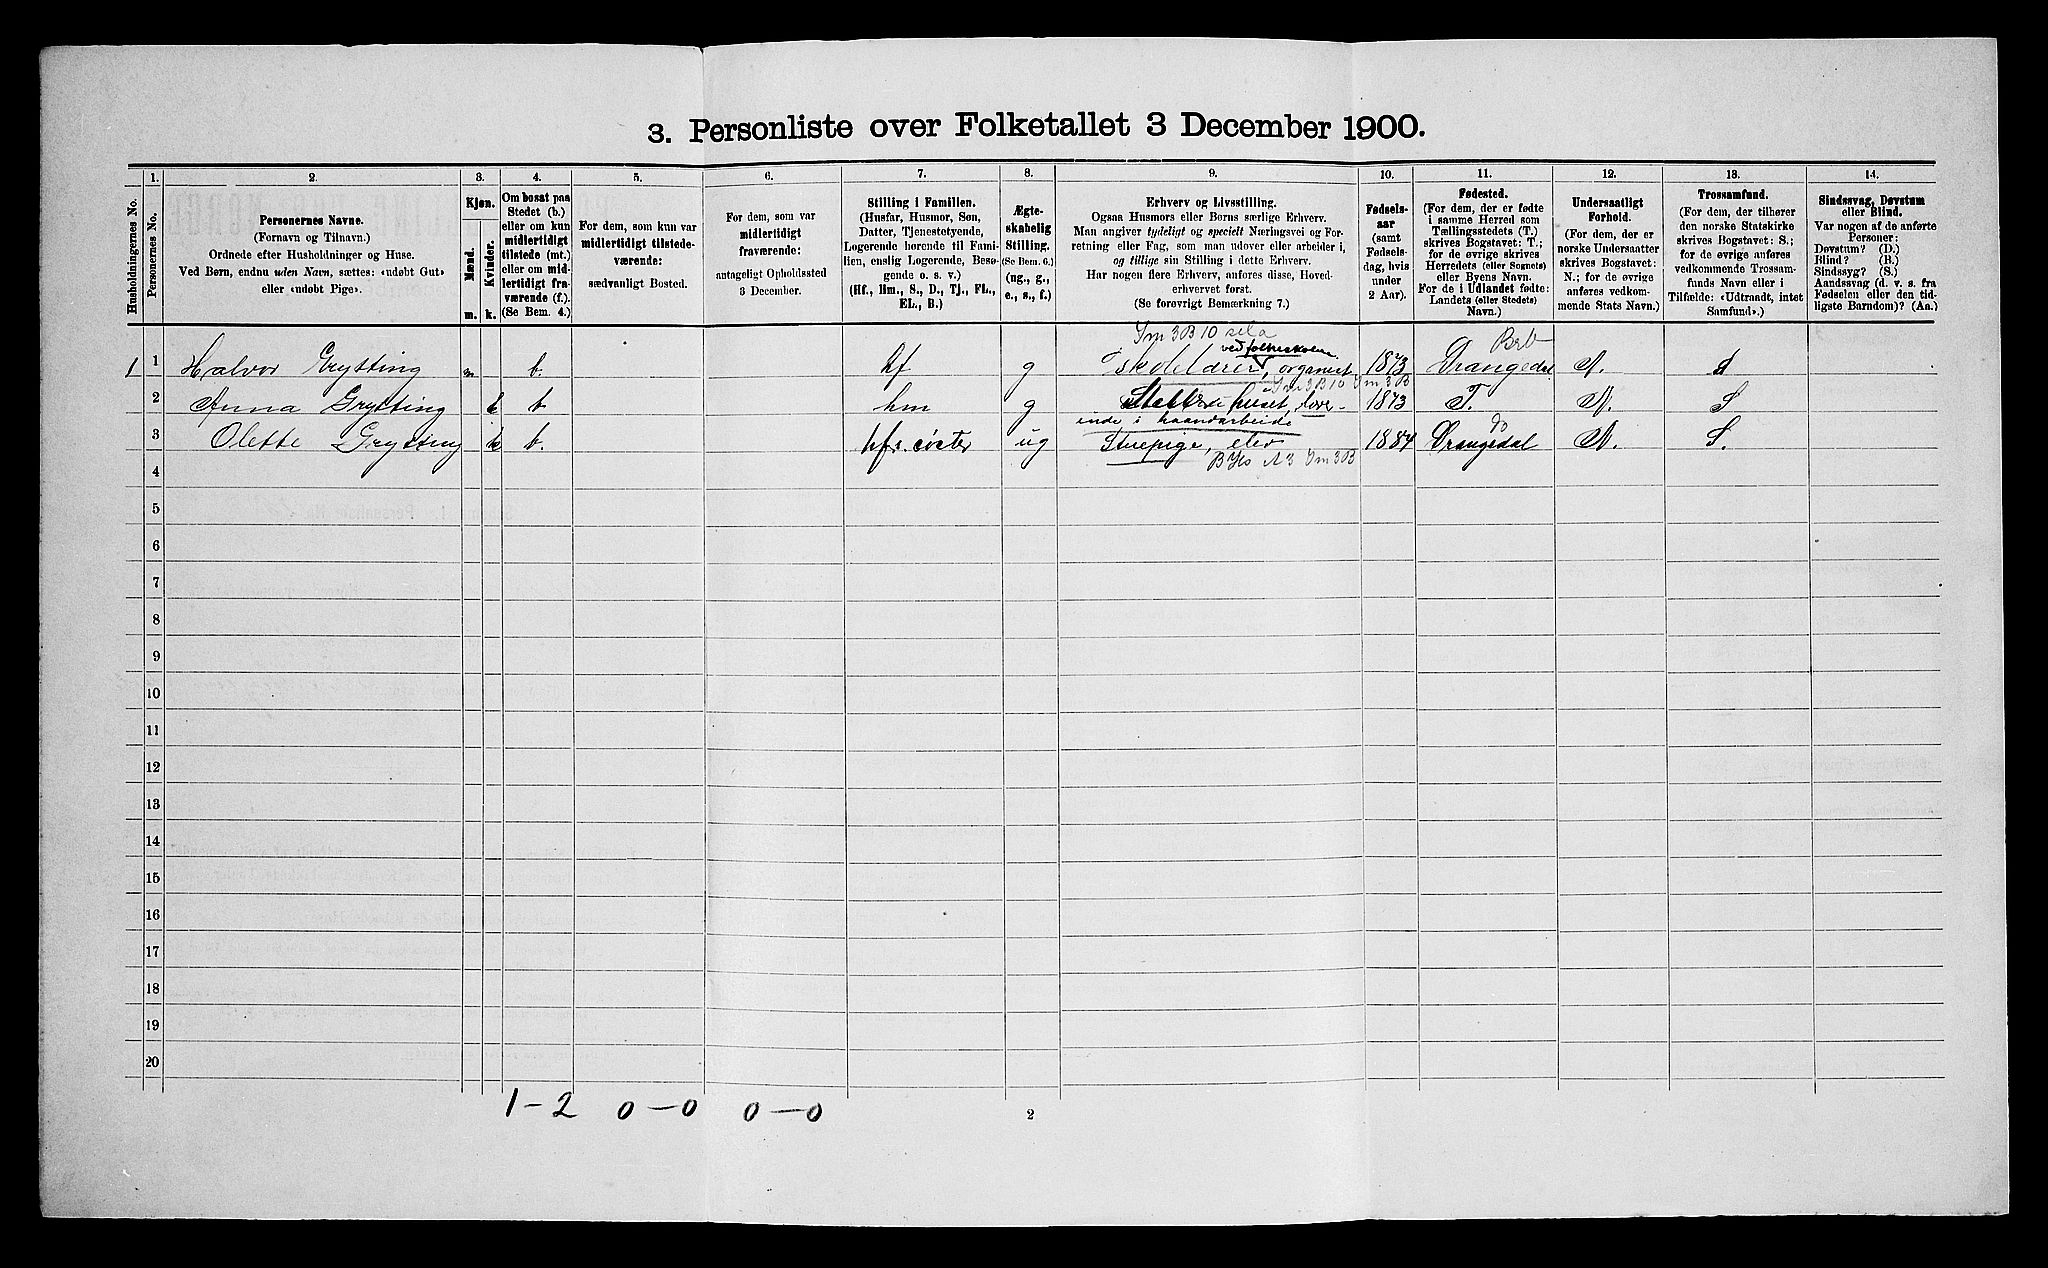 3. Personliste over Folketallet 3 December 1900.
1. 2. 3. 4. 5. 6. 7. 8. 9. 10. 11. 12. 13. 14.
Husholdningernes No.
Personernes No.
Personernes Navne.
(Fornavn og Tilnavn.)
Ordnede efter Husholdninger og Huse.
Ved Børn, endnu uden Navn, sættes: «udøbt Gut»
eller «udøbt Pige».
Kjøn.
Mænd.
Kvinder.
m. k.
Om bosat paa
Stedet (b.)
eller om kun
midlertidigt
tilstede (mt.)
eller om mid-
lertidigt fra-
værende (f.).
(Se Bem. 4.)
For dem, som kun var
midlertidigt tilstede-
værende:
sædvanligt Bosted.
For dem, som var
midlertidigt
fraværende:
antageligt Opholdssted
3 December.
Stilling i Familien.
(Husfar, Husmor, Søn,
Datter, Tjenestetyende,
Logerende hørende til Fami-
lien, enslig Logerende, Besø-
gende o. s. v.)
(Hf., Hm., S., D., Tj., FL.,
EL., B.)
Ægte-
skabelig
Stilling.
(Se Bem. 6.)
(ug., g.,
e., s., f.)
Erhverv og Livsstilling.
Ogsaa Husmors eller Børns særlige Erhverv.
Man angiver tydeligt og specielt Næringsvei og For-
retning eller Fag, som man udøver eller arbeider i,
og tillige sin Stilling i dette Erhverv.
Har nogen flere Erhverv, anføres disse, Hoved-
erhvervet først.
(Se forøvrigt Bemærkning 7.)
Fødsels-
aar
(samt
Fødsels-
dag, hvis
under
2 Aar).
Fødested.
(For dem, der er fødte
i samme Herred som
Tællingsstedets (T.)
skrives Bogstavet: T.;
for de øvrige skrives
Herredets (eller Sognets)
eller Byens Navn.
For de i Udlandet fødte:
Landets (eller Stedets)
Navn.)
Undersaatligt
Forhold.
(For dem, der er
norske Undersaatter
skrives Bogstavet:
N.; for de øvrige
anføres vedkom-
mende Stats Navn.)
Trossamfund.
(For dem, der tilhører
den norske Statskirke
skrives Bogstavet: S.;
for de øvrige anføres
vedkommende Trossam-
funds Navn eller i
Tilfælde: «Udtraadt, intet
Samfund».)
Sindssvag, Døvstum
eller Blind.
Var nogen af de anførte
Personer:
Døvstum? (D.)
Blind? (B.)
Sindssyg? (S.)
Aandssvag (d. v. s. fra
Fødselen eller den tid-
ligste Barndom)? (Aa.)
ved folkeskolen
1 1 Halvor Grytting m b. hf g organist 1873 Drangedal N. S
2 Anna Grytting k b hm g huset, lærer- 1873 T. N. S
inde i haandarbeide
3 Olette Grytting k b. hfs. søster ug Stuepige, elev 1884 Drangedal N. S.
4
5
6
7
8
9
10
11
12
13
14
15
16
17
18
19
20
1-2 0-0 0-0
2